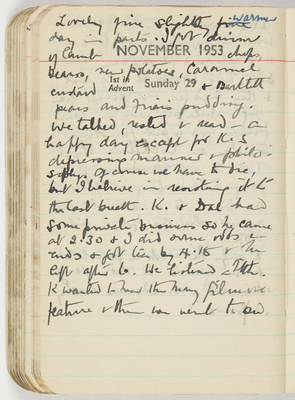 Lovely fine slightly warmer
day in parts. I got dinner
of Lamb chops,
NOVEMBER 1953
beans, new potatoes, Caramel
1st in Advent
Sunday 29
custard & Bartlett
pears and pudding.
We talked, rested & read - a
happy day except for K.'s
depressing manner & philo-
sophy. Of course we have to die,
but I believe in resisting it to
the last breath. K. & Dad had
some private business so he came
at 2.30 & I did some odds &
ends & got tea by 4.15 & he
left after 6. We listened
K wanted to hear the
feature & then we went to bed.